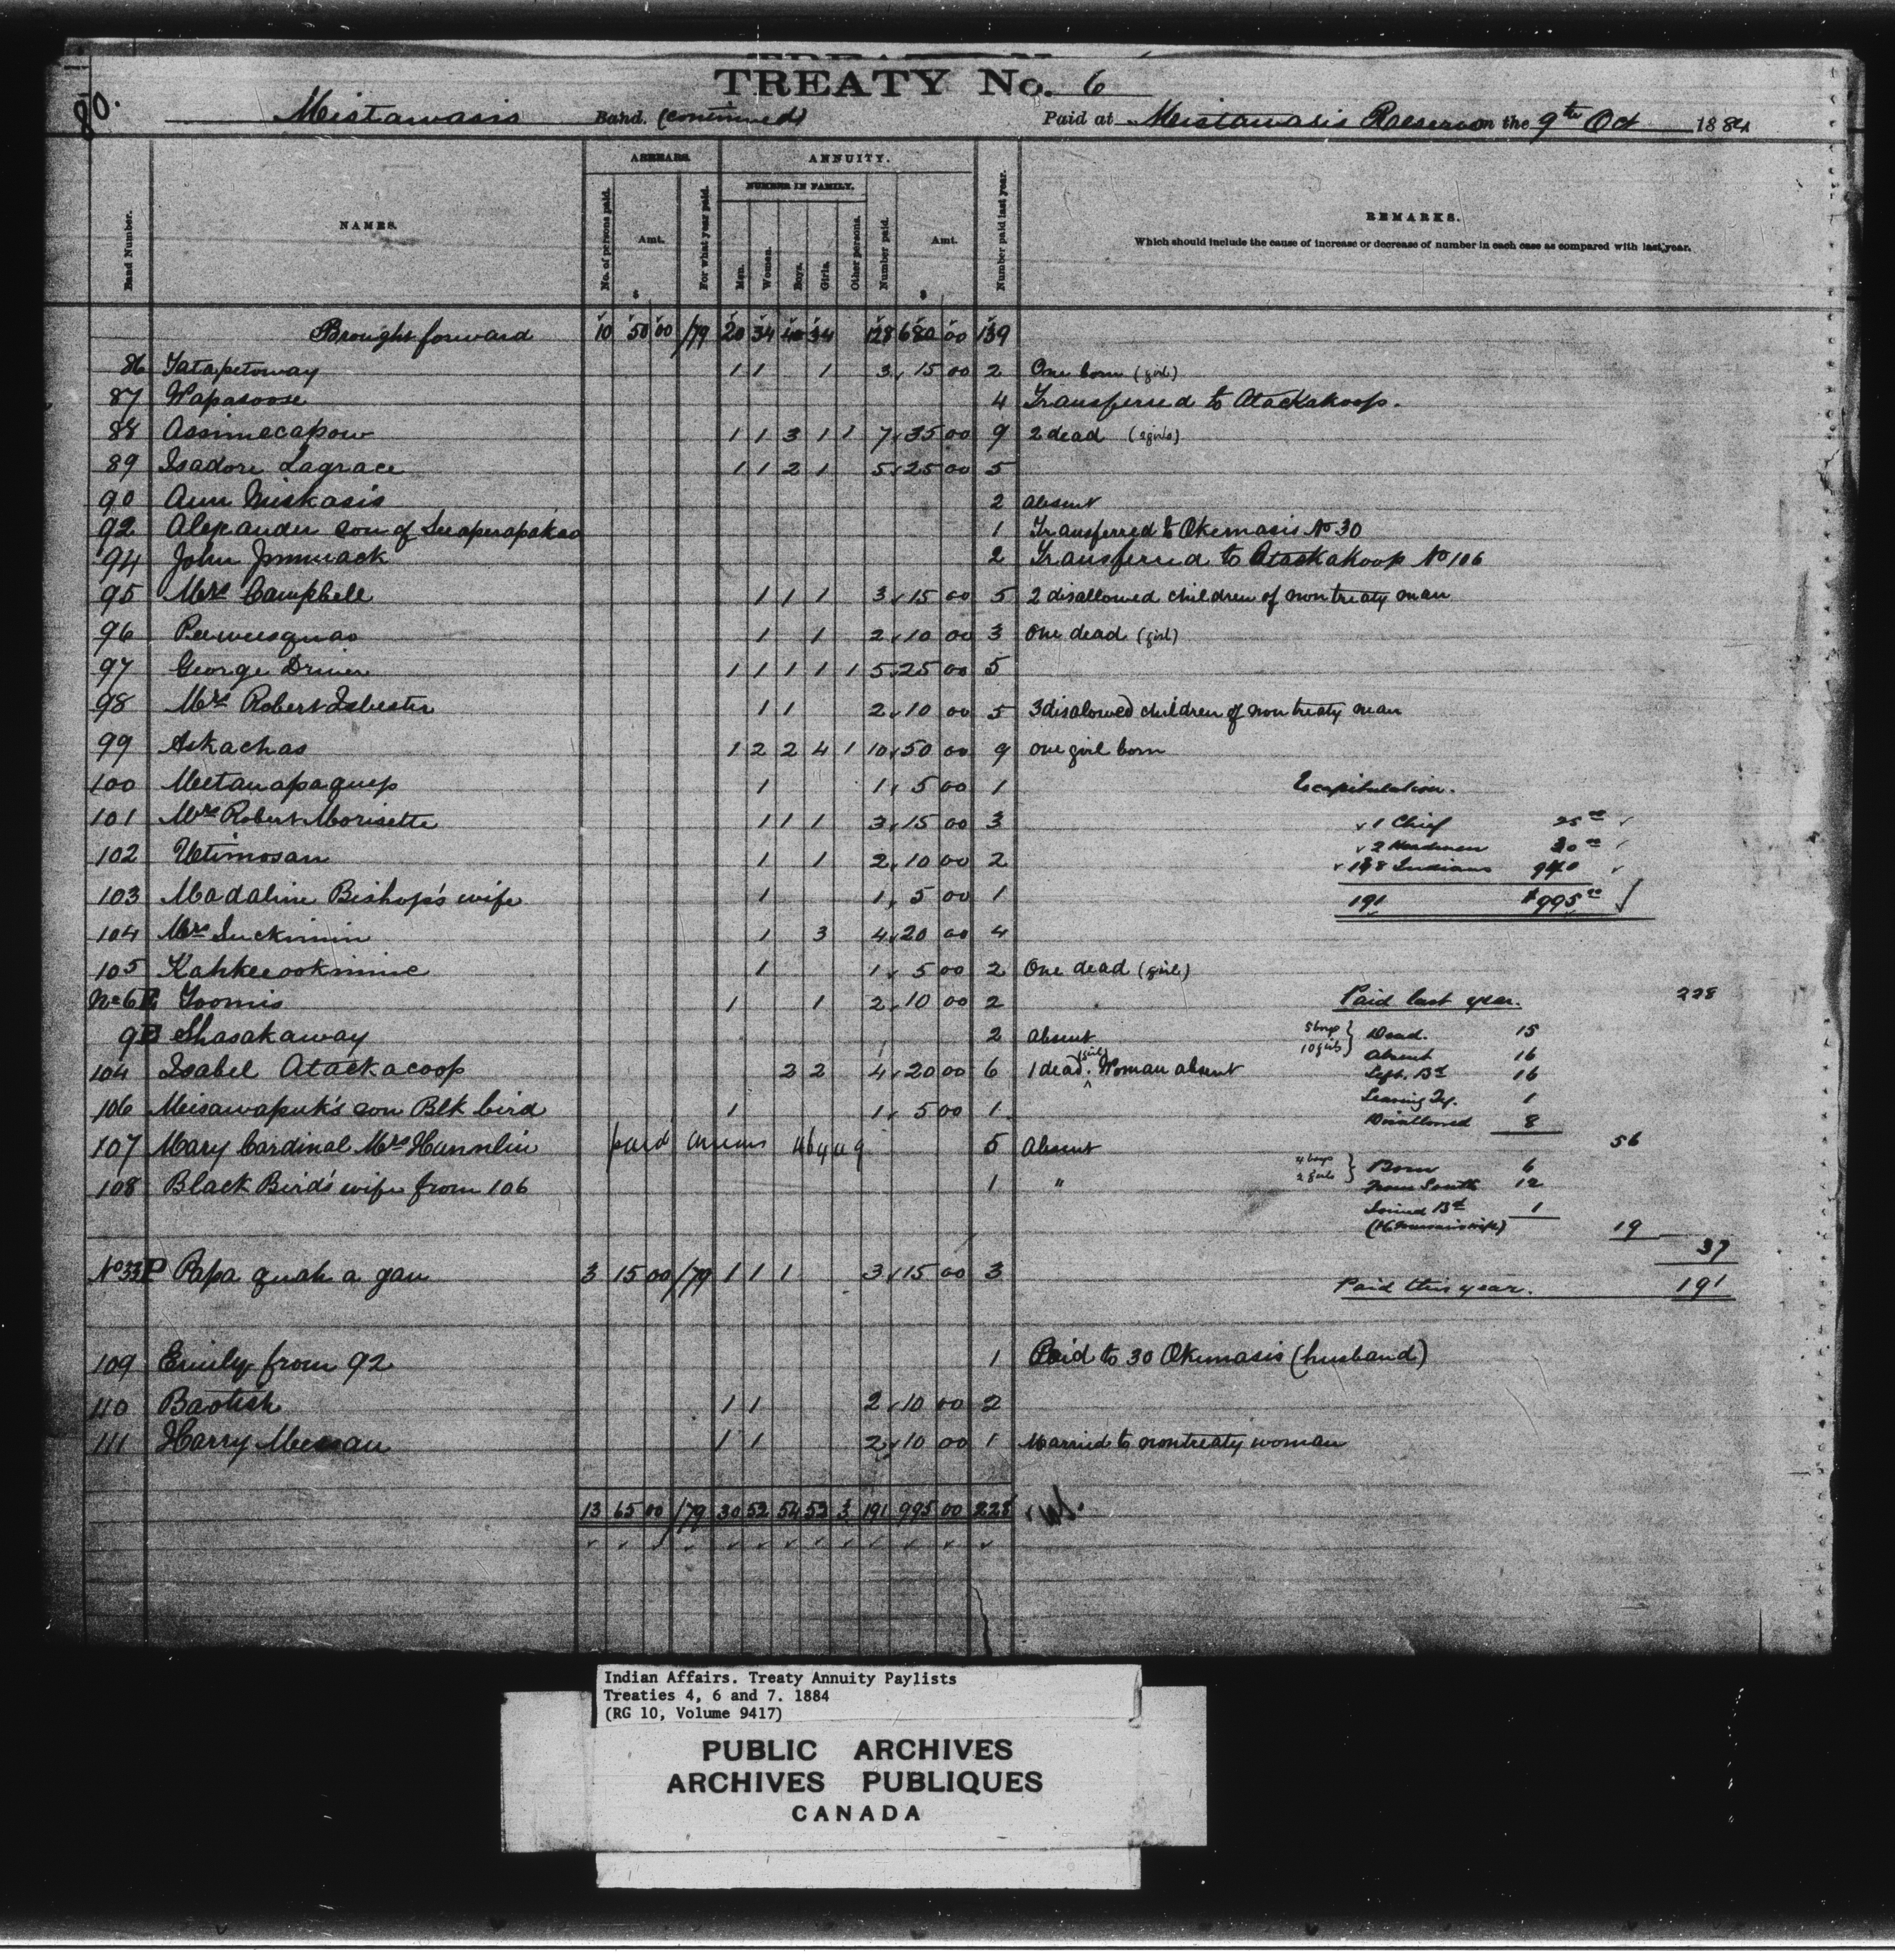 80.
TREATY No. 6
Mistawasis Band. (continued) Paid at Mistawasis Reserve on the 9th Oct 1884
ARREARS. ANNUITY.
NUMBER IN FAMILY.
Band Number. NAMES. No. of persons paid. Amt. $ For what year paid. Men. Women. Boys. Girls. Other persons. Number paid. Amt. $ Number paid last year. REMARKS.
Which should include the cause of increase or decrease of number in each case as compared with last year.
Brought forward 10 50 00 /79 20 34 40 34 128 680 00 139
86 Tatapetoway 1 1 1 3 15 00 2 One born (girl)
87 Wapasoose 4 Transferred to Atackakoop.
88 Assinecapow 1 1 3 1 1 7 35 00 9 2 dead (2 girls)
89 Isadore Lagrace 1 1 2 1 5 25 00 5
90 Ann Miskasis 2 absent
92 Alexander son of 1 Transferred to Okemasis No 30
94 John 2 Transferred to Atackakoop No 106
95 Mrs Campbell 1 1 1 3 15 00 5 2 disallowed children of non treaty man
96 Peeweesquao 1 1 2 10 00 3 One dead (girl)
97 George Driver 1 1 1 1 1 5 25 00 5
98 Mrs Robert Isbester 1 1 2 10 00 5 3 disalowed children of non treaty man
99 Askachas 1 2 2 4 1 10 50 00 9 one girl born
100 Meetanapaquep 1 1 5 00 1
101 Mrs Robert Morisette 1 1 1 3 15 00 3
102 Utimosan 1 1 2 10 00 2
103 Madaline Bishop's wife 1 1 5 00 1
104 Mrs Suckimin 1 3 4 20 00 4
105 Kahkeeookinine 1 1 5 00 2 One dead (girl)
No 6 P Toomis 1 1 2 10 00 2
9 P Shasakaway 2 absent
104 Isabel Atackacoop 2 2 4 20 00 6 1 dead (girl). Woman absent
106 Meisawapuk's son Blk bird 1 1 5 00 1
107 Mary Cardinal Mrs Hannlin paid 5 Absent
108 Black Bird's wife from 106 1 "
No 33 P Papa quah a gan 3 15 00 /79 1 1 1 3 15 00 3
109 Emily from 92 1 Paid to 30 Okemasis (husband)
110 Baptish 1 1 2 10 00 2
111 Harry Meesan 1 1 2 10 00 1 Married to nontreaty woman
13 65 00 /79 30 52 54 52 3 191 995 00 228
Recapitulation.
1 Chief 25 00
2 Headmen 30 00
188 Indians 940
191 $995 00
Paid last year. 228
5 boys 10 girls } Dead. 15
Absent 16
Left Bd 16
Leaving Ty. 1
Disallowed 8
56
4 boys 2 girls } Born 6
From South 12
Joined Bd 1
19
37
Paid this year. 191
Indian Affairs. Treaty Annuity Paylists
Treaties 4, 6 and 7. 1884
(RG 10, Volume 9417)
PUBLIC ARCHIVES
ARCHIVES PUBLIQUES
CANADA